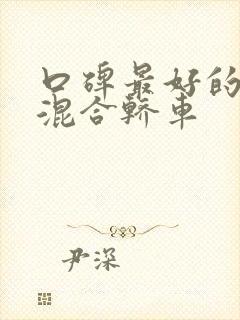 口碑最好的
混合轿车
尹深